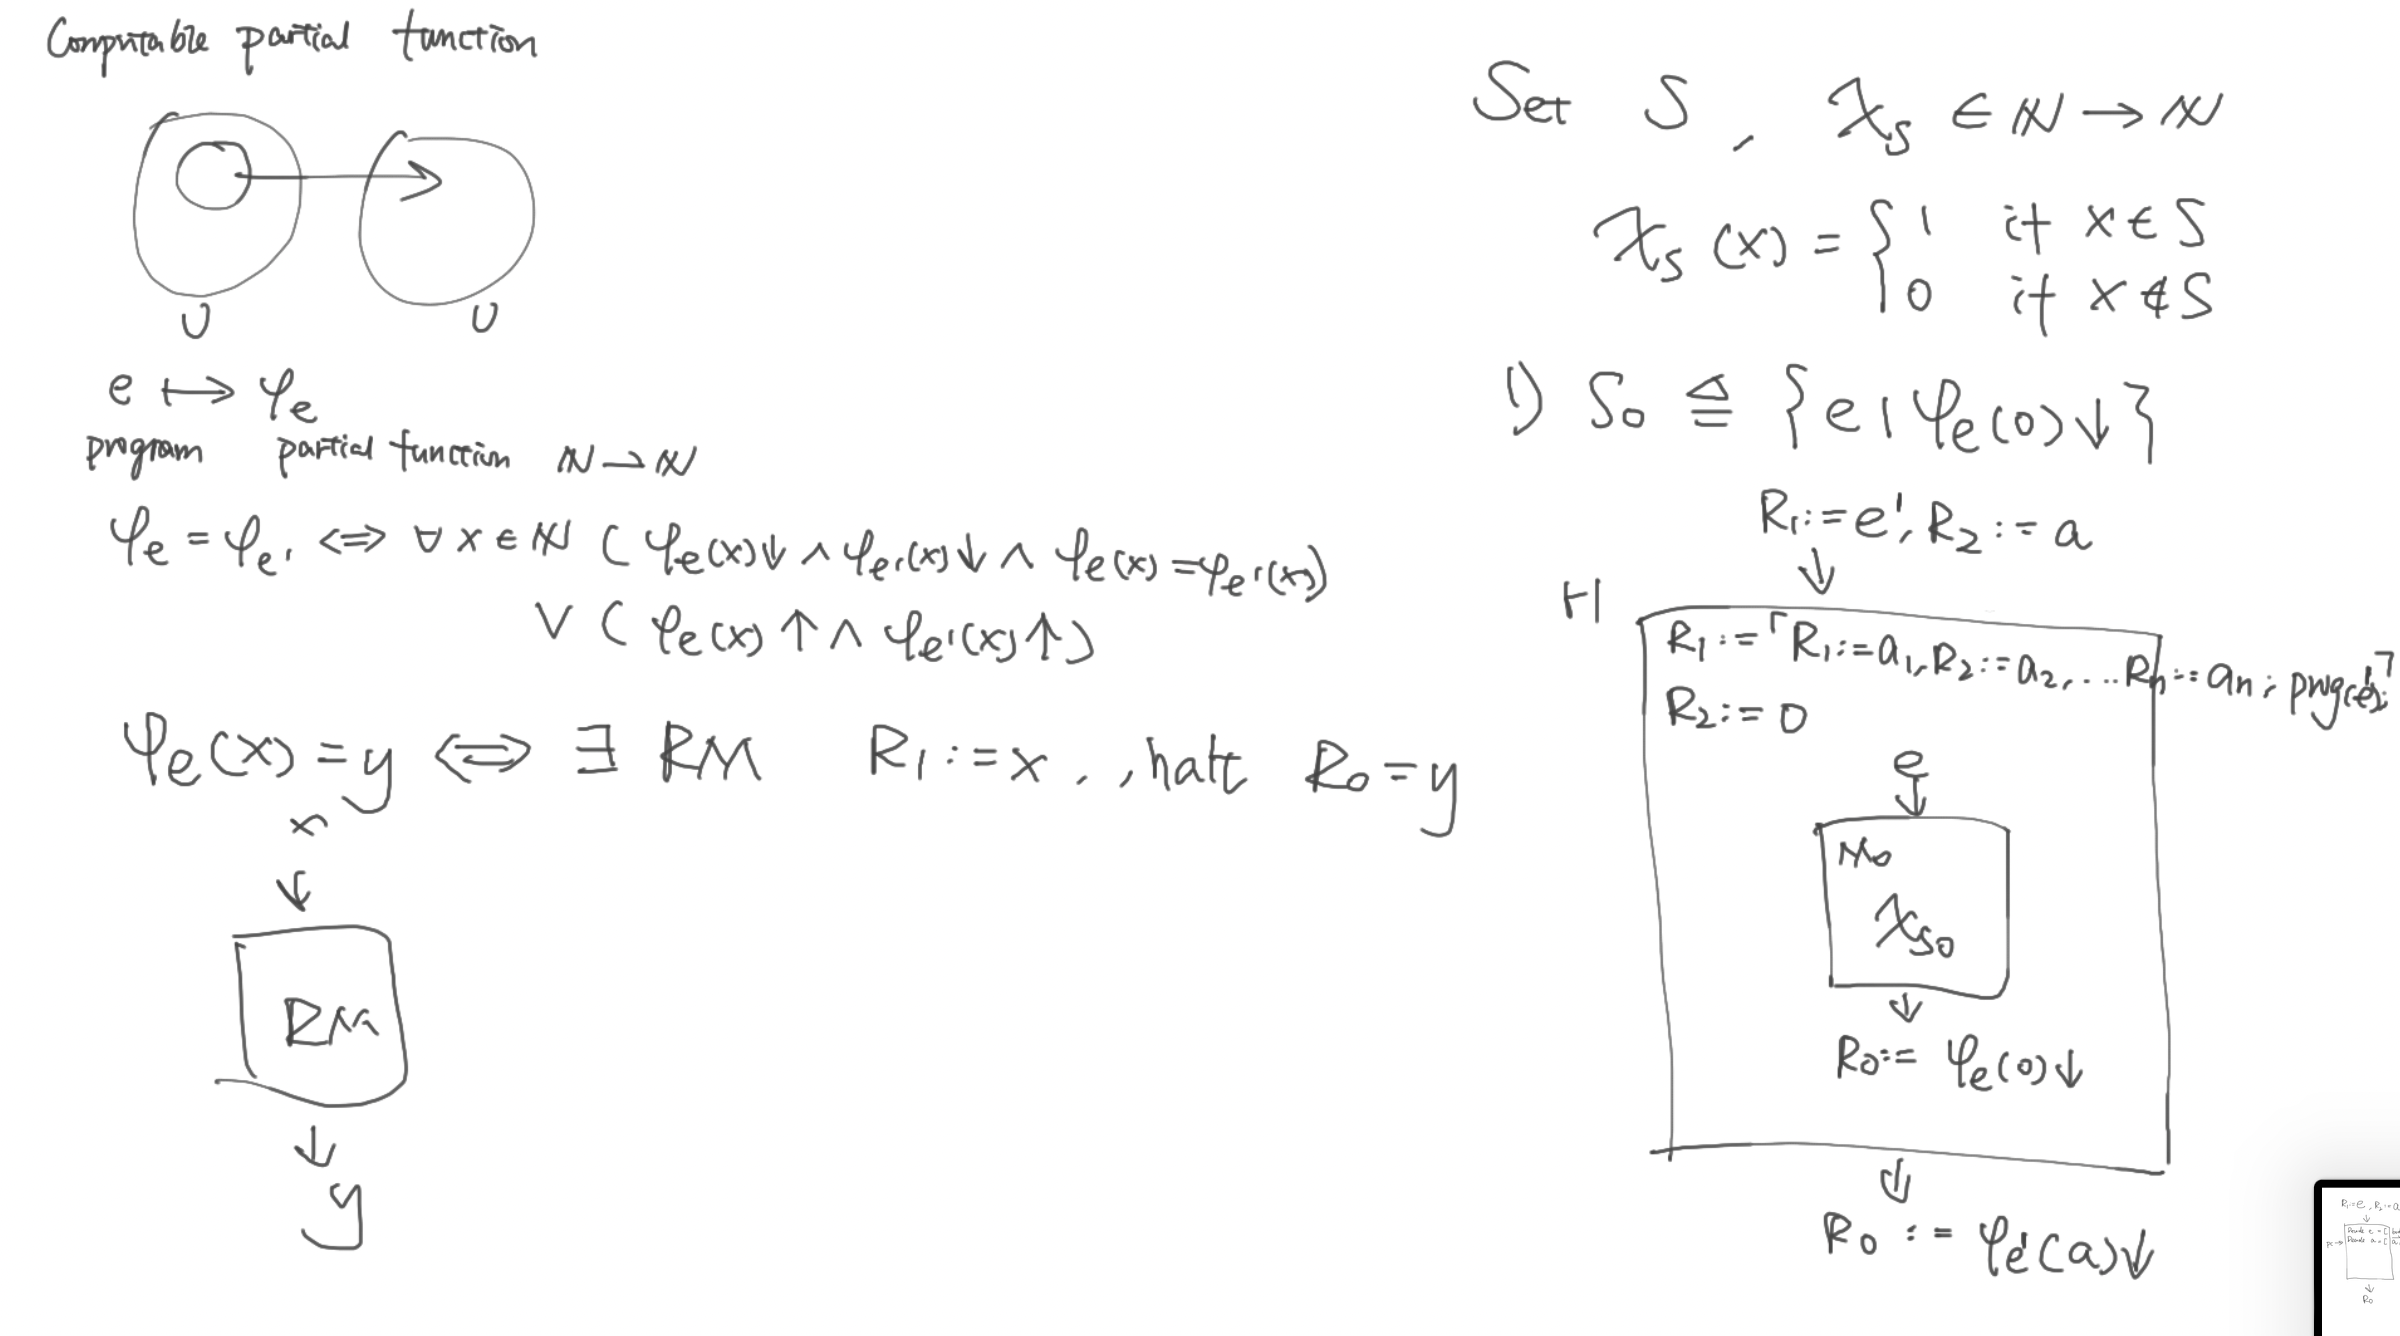 Computable partial function
U U
e ↦ φₑ
program partial function ℕ ⇀ ℕ
φₑ = φₑ' ⟺ ∀x∈ℕ (φₑ(x)↓ ∧ φₑ'(x)↓ ∧ φₑ(x) = φₑ'(x))
∨ (φₑ(x)↑ ∧ φₑ'(x)↑)
φₑ(x) = y ⟺ ∃ RM R₁ := x , , halt R₀ = y
x
↓
RM
↓
y
Set S, χ_S ∈ ℕ → ℕ
χ_S(x) = { 1 if x ∈ S
0 if x ∉ S
1) S₀ ≜ {e | φₑ(0)↓}
R₁ := e', R₂ := a
↓
H
R₁ := ⌜R₁ := a₁, R₂ := a₂, ... Rₙ := aₙ; prog(e')⌝
R₂ := 0
e
↓
M₀
χ_S₀
↓
R₀ := φₑ(0)↓
↓
R₀ := φₑ'(a)↓
R₁ := e, R₂ := a
↓
↓
R₀